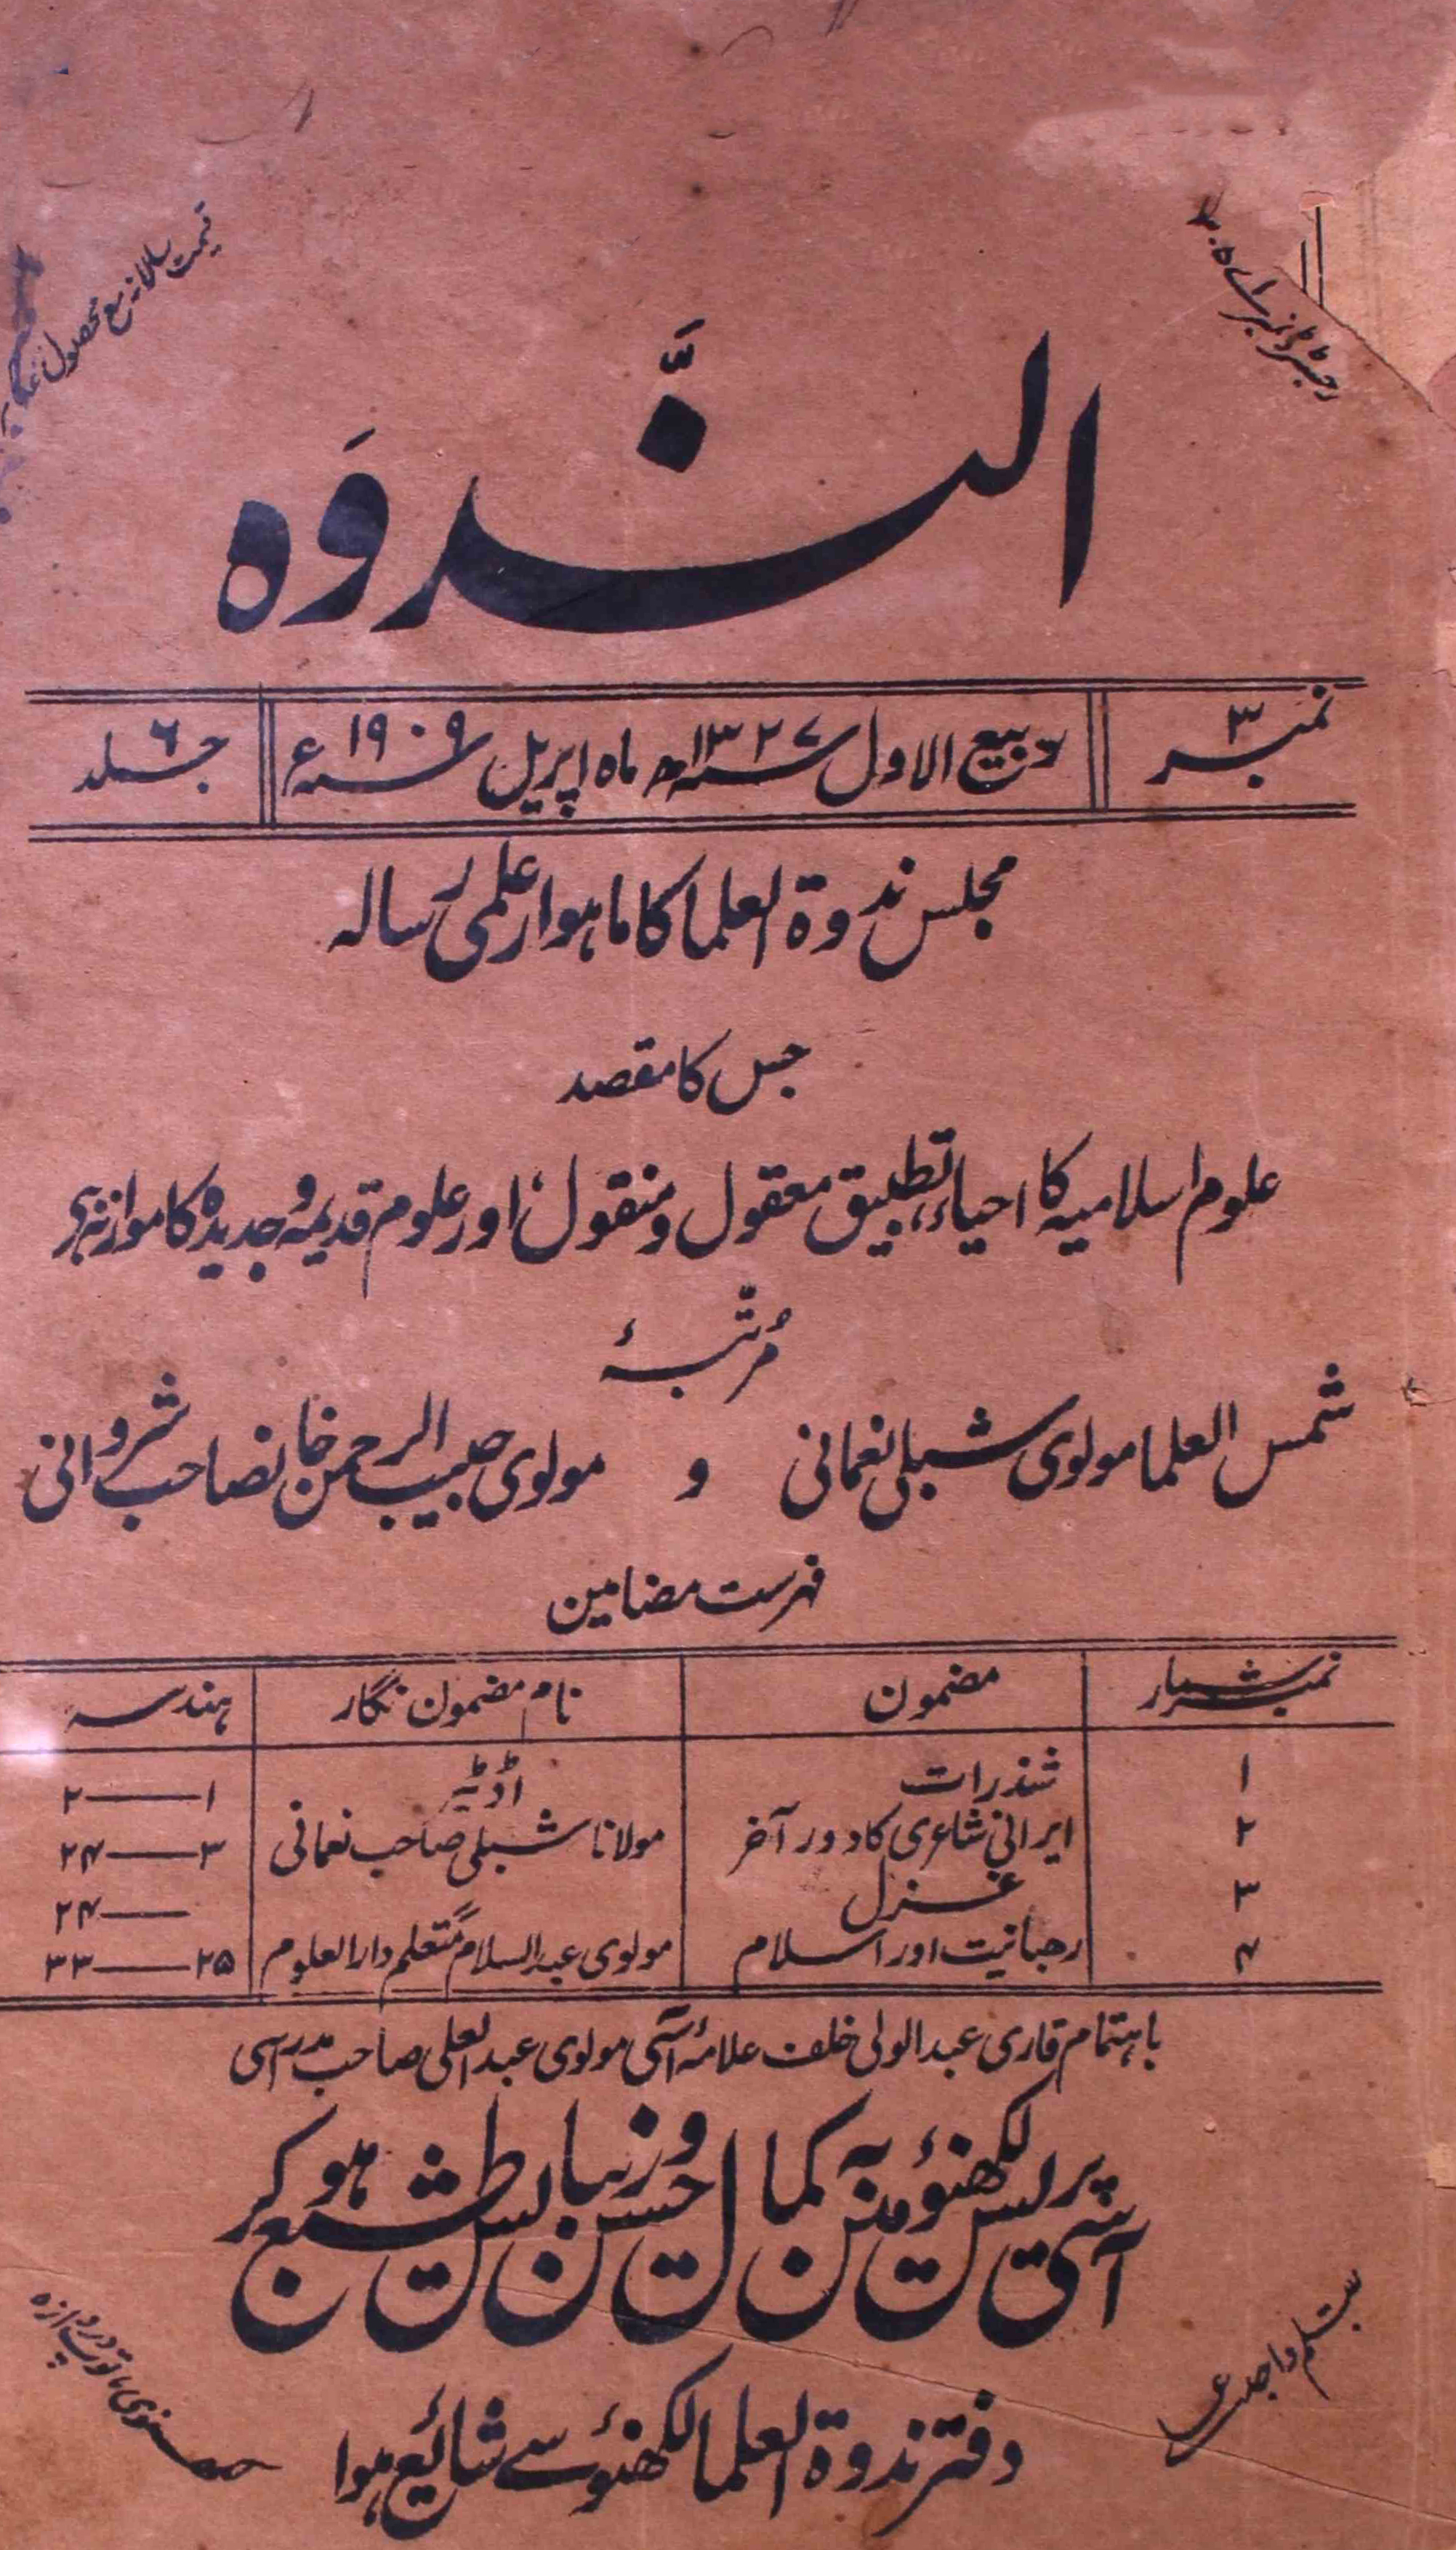 قیمت سالانہ مع محصول
رجسٹرڈ نمبر اے
النَّدوَہ
نمبر ۳
ربیع الاول ۱۳۲۷ سنہ ھ ماہ اپریل ۱۹۰۹ سنہ ء
جلد ۶
مجلس ندوۃ العلما کا ماہوار علمی رسالہ
جس کا مقصد
علوم اسلامیہ کا احیاء، تطبیق معقول و منقول، اور علوم قدیمہ و جدیدہ کا موازنہ ہی
مُرتّبۂ
شمس العلما مولوی شبلی نعمانی و مولوی حبیب الرحمن خانصاحب شروانی
فہرست مضامین
نمبر شمار مضمون نام مضمون نگار ہندسہ
۱ شذرات اڈیٹر ۱—۲
۲ ایرانی شاعری کا دور آخر مولانا شبلی صاحب نعمانی ۳—۲۴
۳ غزل —۲۴
۴ رہبانیت اور اسلام مولوی عبدالسلام متعلم دارالعلوم ۲۵—۳۳
باہتمام قاری عبدالولی خلف علامۂ آسی مولوی عبدالعلی صاحب مدراسی
آسی پریس لکھنؤ میں بہ کمال حسن و زیبایش طبع ہو کر
دفتر ندوۃ العلما لکھنؤ سے شایع ہوا